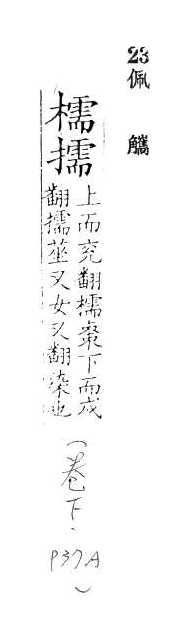 23
佩觿
檽擩
上而兖翻檽棗下而戍
翻擩莖又女又翻染也
(卷下.
P37A
)